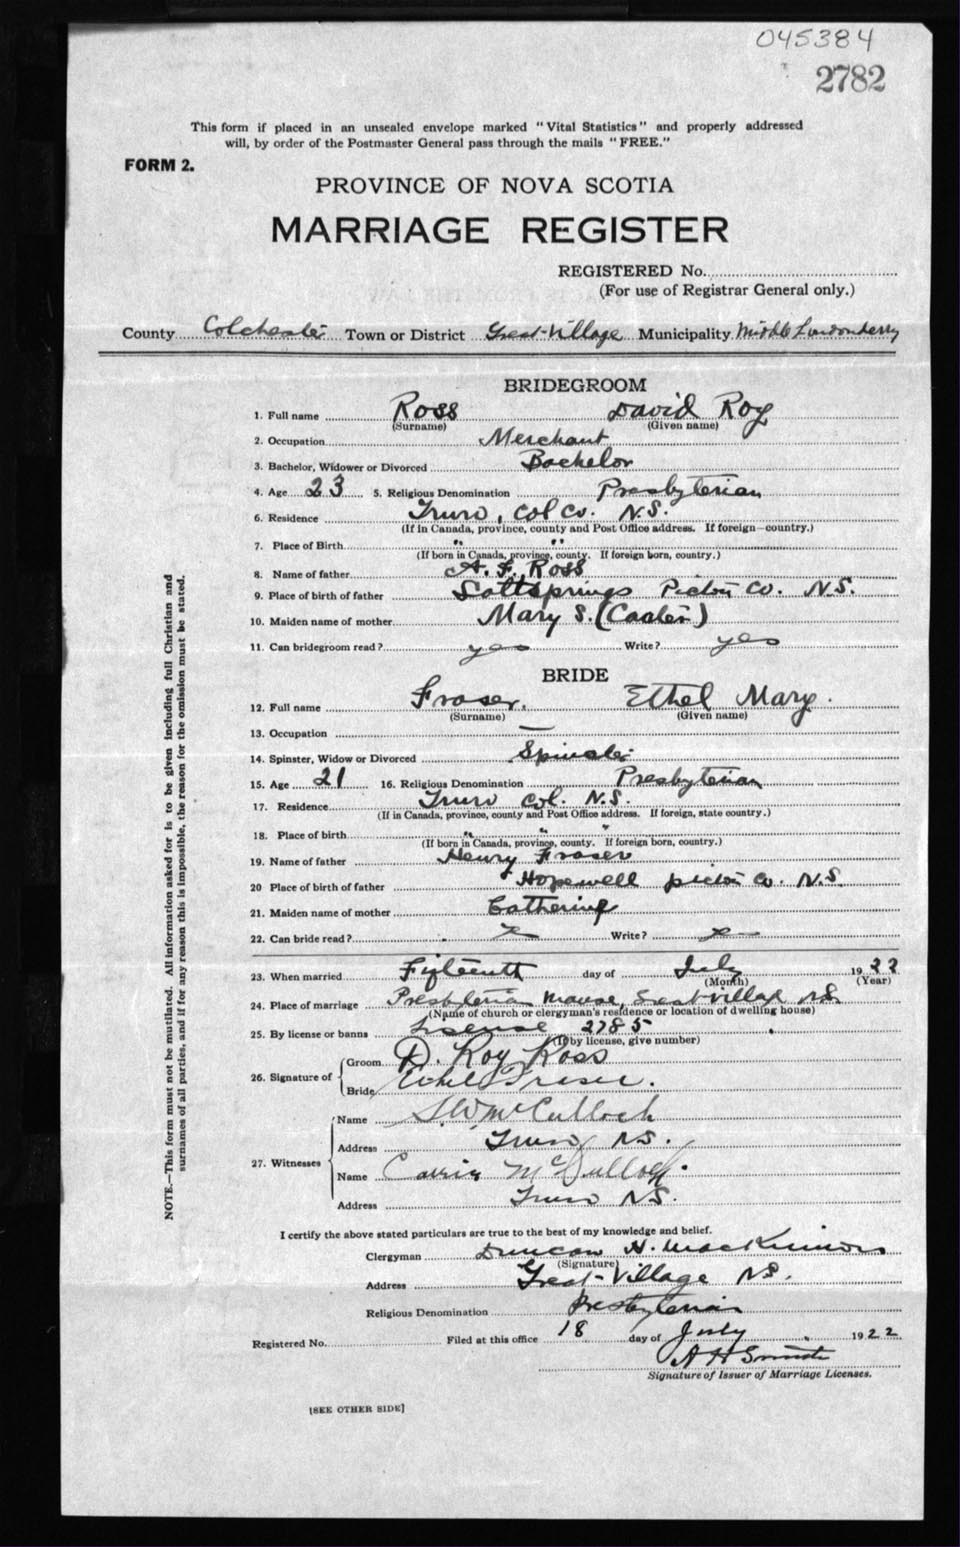 045384
2782
This form if placed in an unsealed envelope marked "Vital Statistics" and properly addressed
will, by order of the Postmaster General pass through the mails "FREE."
FORM 2.
PROVINCE OF NOVA SCOTIA
MARRIAGE REGISTER
REGISTERED No.
(For use of Registrar General only.)
County Colchester Town or District Great-Village Municipality Middle Londonderry
BRIDEGROOM
1. Full name Ross David Roy
(Surname) (Given name)
2. Occupation Merchant
3. Bachelor, Widower or Divorced Bachelor
4. Age 23 5. Religious Denomination Presbyterian
6. Residence Truro, Col Co. N.S.
(If in Canada, province, county and Post Office address. If foreign—country.)
7. Place of Birth " "
(If born in Canada, province, county. If foreign born, country.)
8. Name of father A. F. Ross
9. Place of birth of father Scottsprings Pictou Co. N.S.
10. Maiden name of mother Mary S. ()
11. Can bridegroom read? yes Write? yes
BRIDE
12. Full name Fraser, Ethel Mary.
(Surname) (Given name)
13. Occupation —
14. Spinster, Widow or Divorced Spinster
15. Age 21 16. Religious Denomination Presbyterian
17. Residence Truro Col. N.S.
(If in Canada, province, county and Post Office address. If foreign, state country.)
18. Place of birth " " "
(If born in Canada, province, county. If foreign born, country.)
19. Name of father Henry Fraser
20 Place of birth of father Hopewell Pictou Co. N.S.
21. Maiden name of mother Catherine
22. Can bride read? Write?
23. When married Fifteenth day of July 1922
(Month) (Year)
24. Place of marriage Presbyterian Manse, Great Village N.S.
(Name of church or clergyman's residence or location of dwelling house)
25. By license or banns License 2785
(If by license, give number)
26. Signature of Groom D. Roy Ross
Bride Ethel Fraser.
27. Witnesses Name S. W. McCulloch
Address Truro, N.S.
Name Carrie McCulloch.
Address Truro N.S.
I certify the above stated particulars are true to the best of my knowledge and belief.
Clergyman Duncan H. MacKinnon
(Signature)
Address Great-Village N.S.
Religious Denomination Presbyterian
Registered No. Filed at this office 18 day of July 1922
A H Smith
Signature of Issuer of Marriage Licenses.
[SEE OTHER SIDE]
NOTE.—This form must not be mutilated. All information asked for is to be given including full Christian and
surnames of all parties, and if for any reason this is impossible, the reason for the omission must be stated.